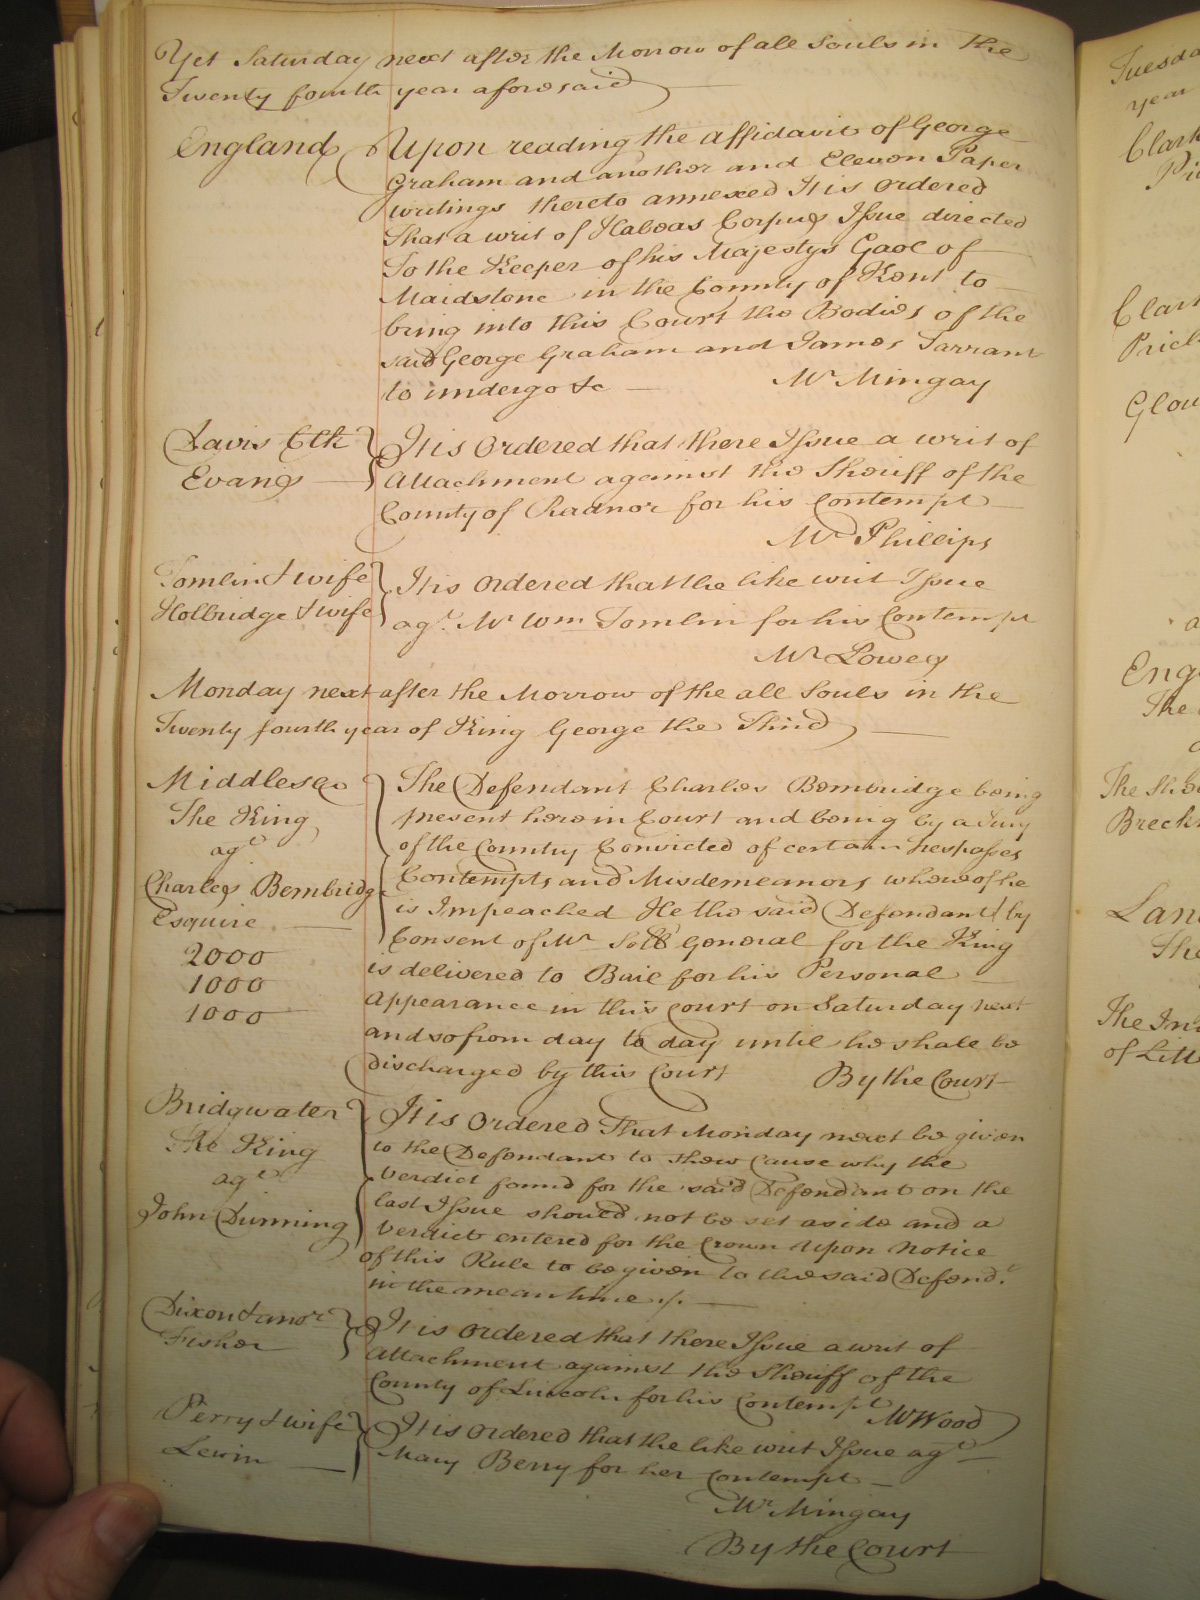 Yet Saturday next after the Morrow of all Souls in the
Twenty fourth year aforesaid
England
Upon reading the affidavit of George
Graham and another and Eleven Paper
writings thereto annexed It is ordered
that a writ of Habeas Corpus Issue directed
To the Keeper of his Majestys Gaol of
Maidstone in the County of Kent to
bring into this Court the Bodies of the
said George Graham and James Tarrant
to undergo &c
Mr Mingay
Davis Clk
Evans
It is ordered that there Issue a writ of
Attachment against the Sheriff of the
County of Radnor for his Contempt
Mr Phillips
Tomlin & wife
Holbridge & wife
It is ordered that the like writ Issue
agt. Mr Wm Tomlin for his Contempt
Mr Lowes
Monday next after the Morrow of the all Souls in the
Twenty fourth year of King George the Third
Middlesex
The King
agt
Charles Bembridge
Esquire
2000
1000
1000
The Defendant Charles Bembridge being
present here in Court and being by a Jury
of the Country Convicted of certain trespasses
Contempts and Misdemeanors whereof he
is Impeached He the said Defendant by
Consent of Mr Sollr General for the King
is delivered to Bail for his Personal
Appearance in this Court on Saturday next
and so from day to day until he shall be
discharged by this Court
By the Court
Bridgwater
The King
agt
John Dunning
It is ordered That Monday next be given
to the Defendant to shew Cause why the
Verdict found for the said Defendant on the
last Issue should not be set aside and a
Verdict entered for the Crown Upon Notice
of this Rule to be given to the said Defendt.
in the mean time ./.
Dixon & anor
Fisher
It is ordered that there Issue a writ of
Attachment against the Sheriff of the
County of Lincoln for his Contempt
Mr Wood
Perry & wife
Lewin
It is ordered that the like writ Issue agt
Mary Berry for her Contempt
Mr Mingay
By the Court